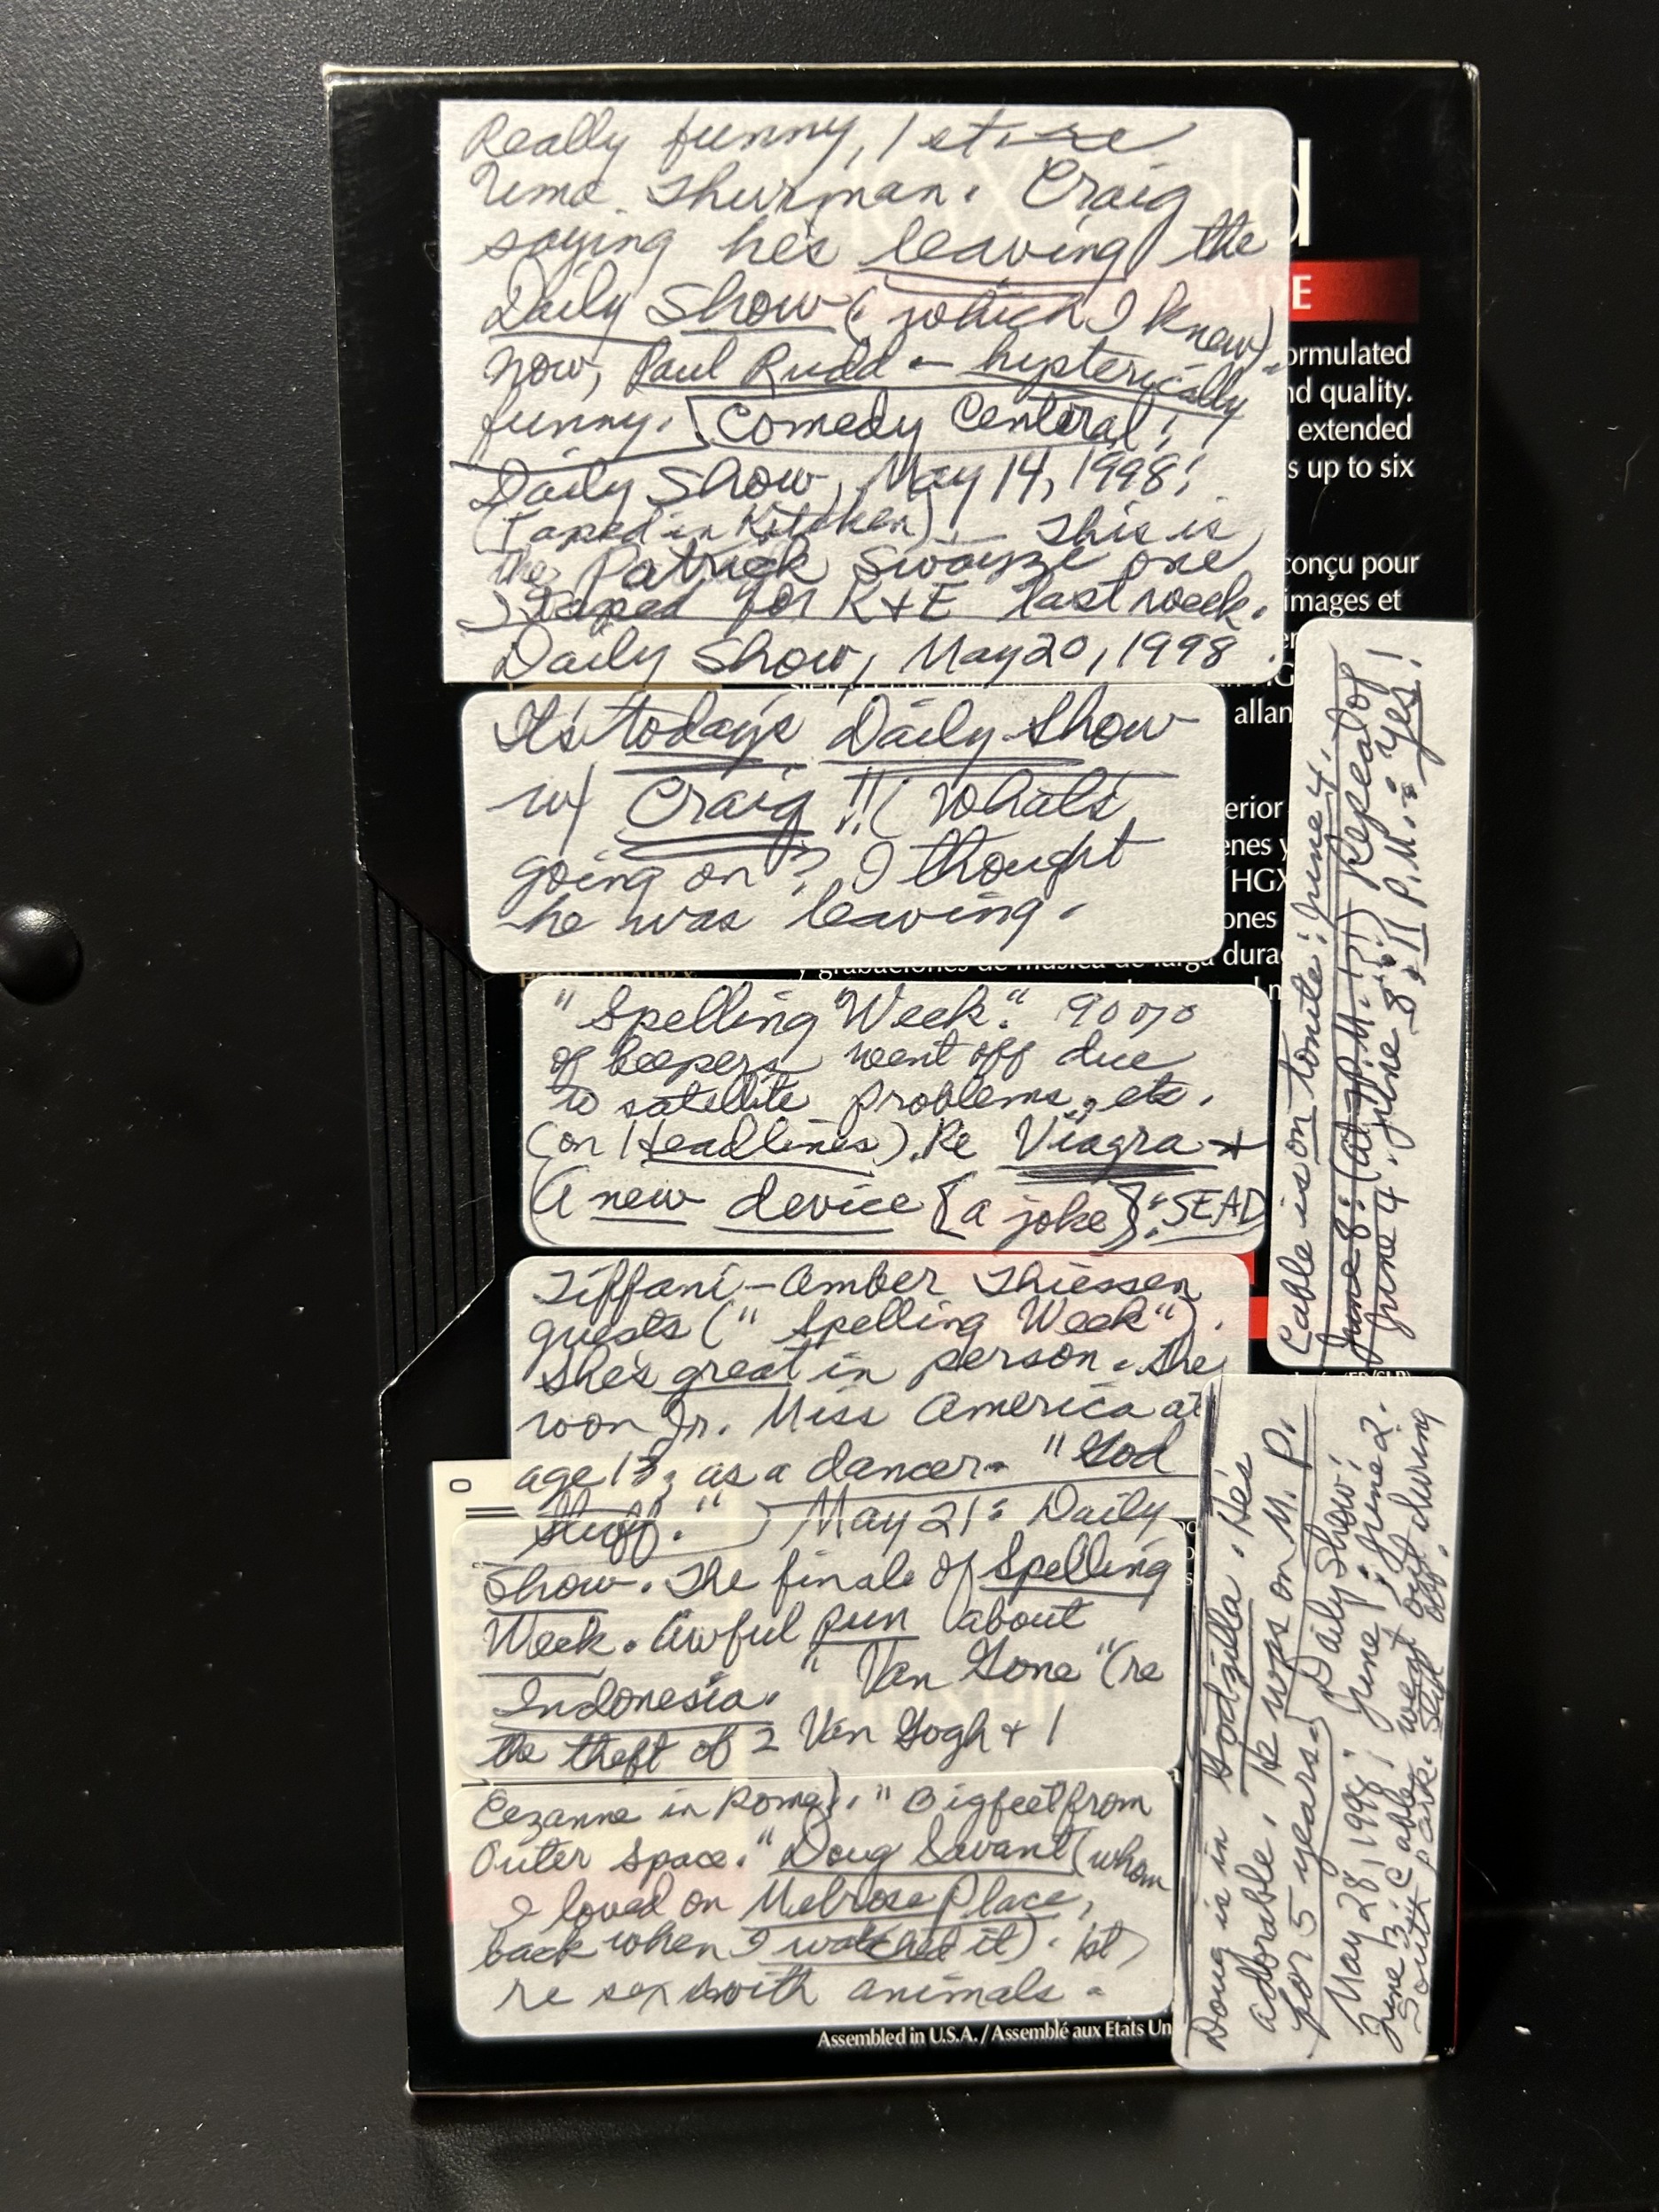 Really funny, 1st re
Uma Thurman. Craig
saying he's leaving the
Daily Show (which I knew).
Now, Paul Rudd – hysterically
funny. Comedy Central:
Daily Show, May 14, 1998:
(Taped in Kitchen). This is
the Patrick Swayze one
Taped for R+E last week.
Daily Show, May 20, 1998.
It's today's Daily Show
w/ Craig!! (What's
going on? I thought
he was leaving.
"Spelling Week." 90%
of beepers went off due
to satellite problems, etc.
(on Headlines). Re Viagra +
A new device {a joke}: "SEAD
Tiffani-Amber Thiessen
guests ("Spelling Week").
She's great in person. She
won Jr. Miss America at
age 13, as a dancer. "God
Stuff." May 21: Daily
Show. The finale of Spelling
Week. Awful pun about
Indonesia. "Van Gone" (re
the theft of 2 Van Gogh + 1
Cezanne in Rome). "Bigfeet from
Outer Space." Doug Savant (whom
I loved on Melrose Place,
back when I watched it). 1st,
re sex with animals.
Doug is in Godzilla. He's
adorable. He was on M. P.
for 5 years. Daily Show:
May 28, 1998; June 1; June 2.
June 3: Cable went out during
South Park. Still off.
Cable is on tonite: June 4.
June 8: (at 7 P.M.!?) Repeat of
June 4. June 8, 11 P.M.: Yes!
ormulated
nd quality.
extended
s up to six
conçu pour
images et
allan
erior
enes y
HGX
ones
dura
y grabaciones de música de larga
Assembled in U.S.A. / Assemblé aux Etats Un